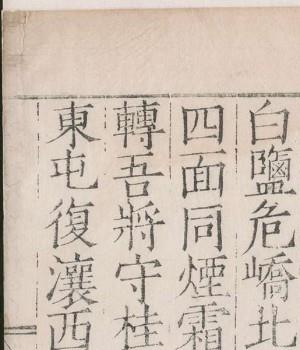 白鹽危嶠北
四面同煙霜
轉吾將守桂
東屯復瀼西